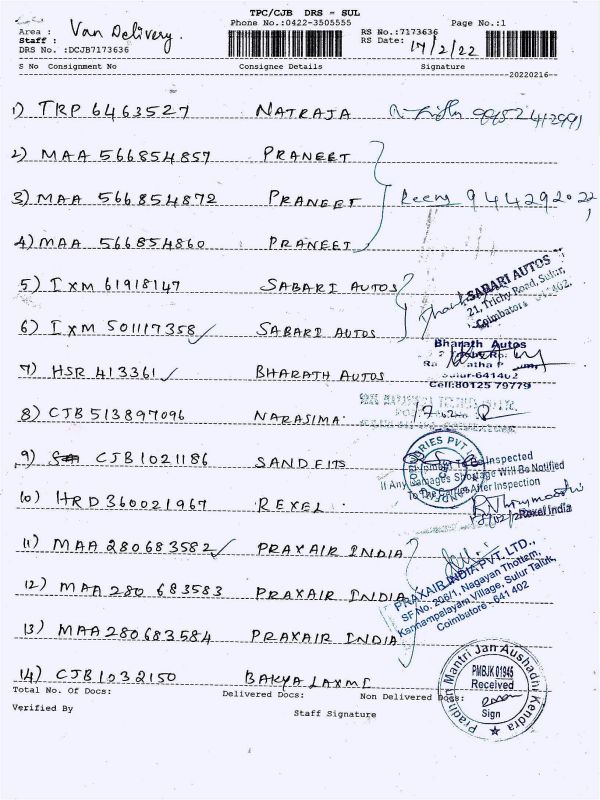 TPC/CJB DRS - SUL
Area : Van Delivery. Phone No.:0422-3505555 Page No.:1
Staff : RS No.:7173636
DRS No. :DCJB7173636 RS Date: 17/2/22
S No Consignment No Consignee Details Signature
20220216
1) TRP 6463527 NATRAJA
2) MAA 566854857 PRANEET
3) MAA 566854872 PRANEET
4) MAA 566854860 PRANEET
5) IXM 61918147 SABARI AUTOS
SABARI AUTOS
21, Trichy Road, Sulur,
Coimbatore - 641 402.
6) IXM 501117358 SABARI AUTOS
Bharath Autos
7) HSR 413361 BHARATH AUTOS
Sulur-641402
Cell:80125 79779
8) CJB 513897096 NARASIMA
9) CJB 1021186 SANDFITS
Shipment To Be Inspected
If Any Damages Shortage Will Be Notified
To The Parties After Inspection
10) HRD 360021967 REXEL
Rexel India
11) MAA 280683582 PRAXAIR INDIA
PRAXAIR INDIA PVT. LTD.,
SF.No. 206/1, Nagayan Thottem,
Kannampalayam Village, Sulur Taluk,
Coimbatore - 641 402
12) MAA 280 683583 PRAXAIR INDIA
13) MAA 280683584 PRAXAIR INDIA
14) CJB 1032150 BAKYA LAXMI
Pradhan Mantri Jan Aushadhi Kendra
PMBJK 01945
Received
Sign
Total No. Of Docs: Delivered Docs: Non Delivered Docs:
Verified By Staff Signature